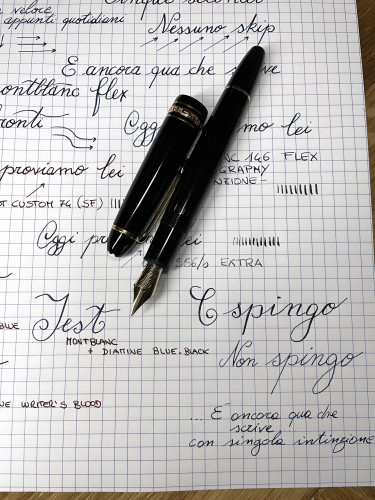 Cinque secondi
veloce
appunti quotidiani
Nessuno skip
E ancora qua che scrive
ontblanc flex
ronti
Oggi mo lei
NC 146 FLEX
proviamo lei
GRAPHY
NZIONE-
OT CUSTOM 74 (SF)
Oggi pr lei
556/s EXTRA
E spingo
Test
BLUE
MONTBLANC
+ DIAMINE BLUE-BLACK
Non spingo
NE WRITER'S BLOOD
... E ancora qua che
scrive
con singola intinzione